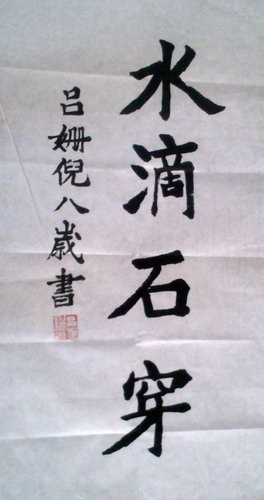 水滴石穿
吕姗倪八歲書